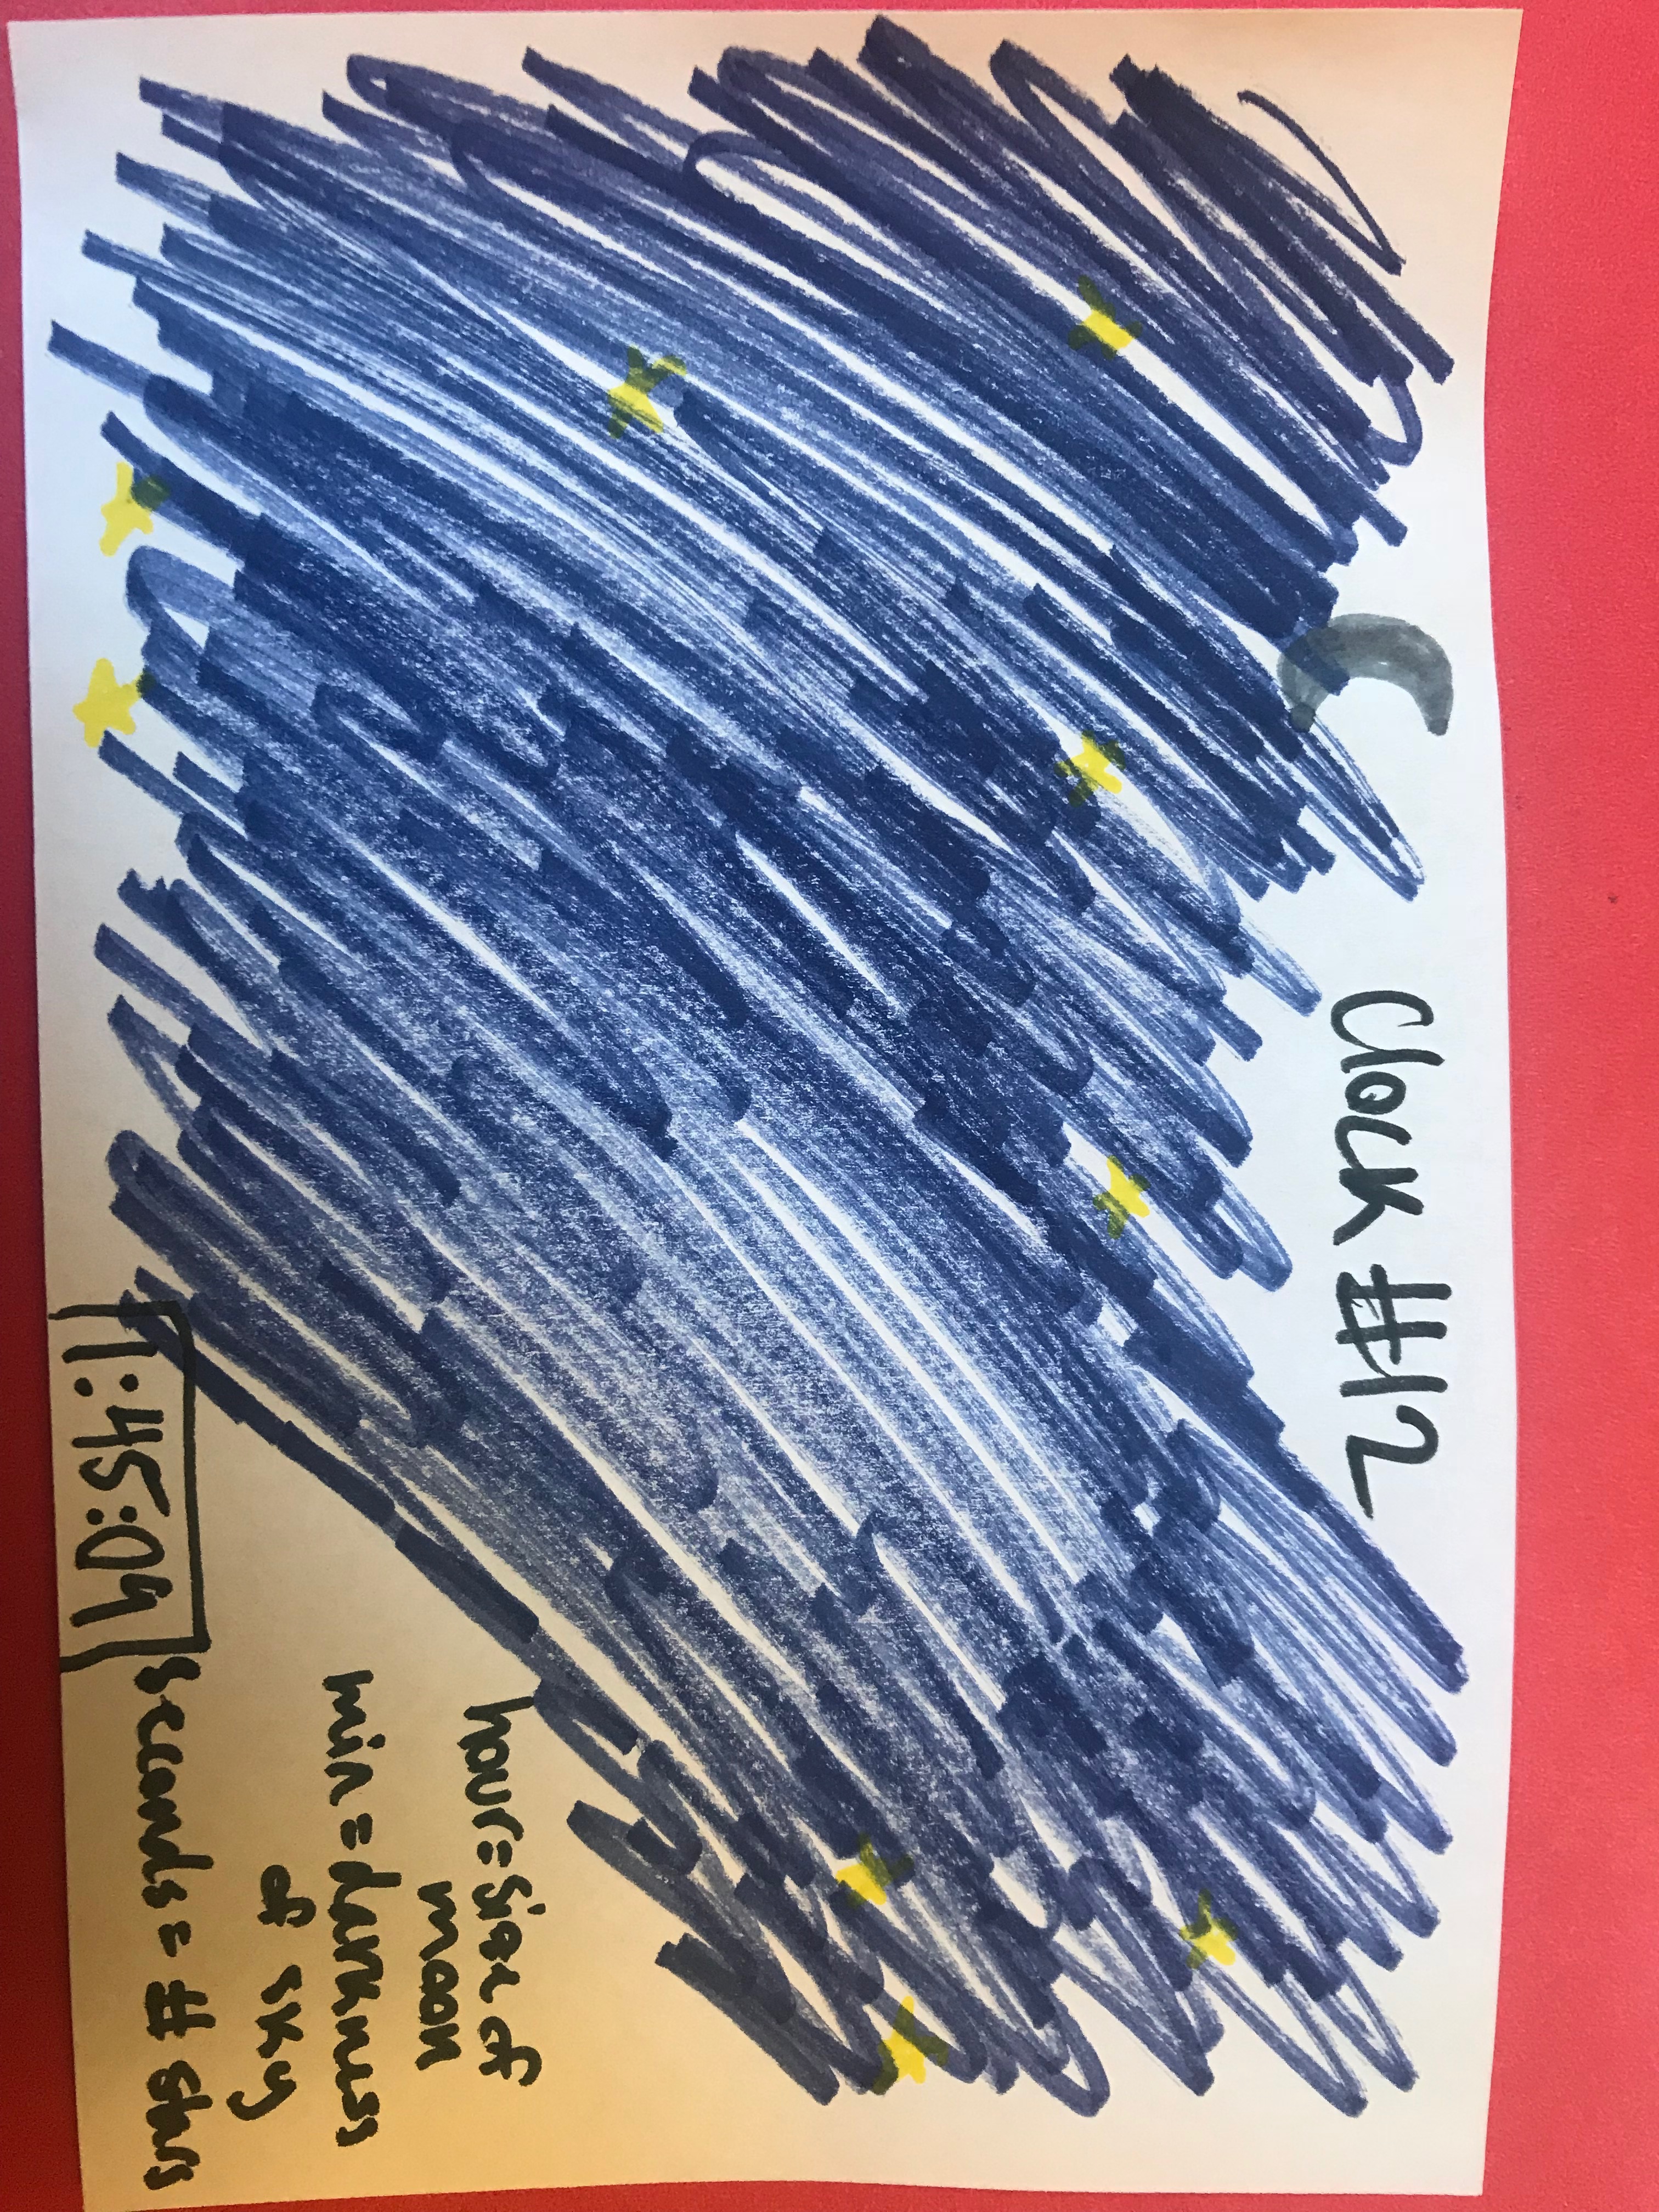 Clock #12
hour = size of
moon
min = darkness
of sky
seconds = # stars
1:45:09